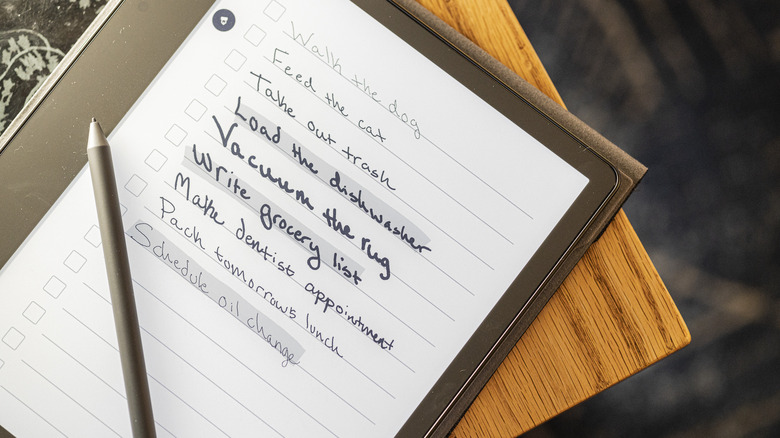 Walk the dog
Feed the cat
Take out trash
Load the dishwasher
Vacuum the rug
Write grocery list
Make dentist appointment
Pack tomorrows lunch
Schedule oil change